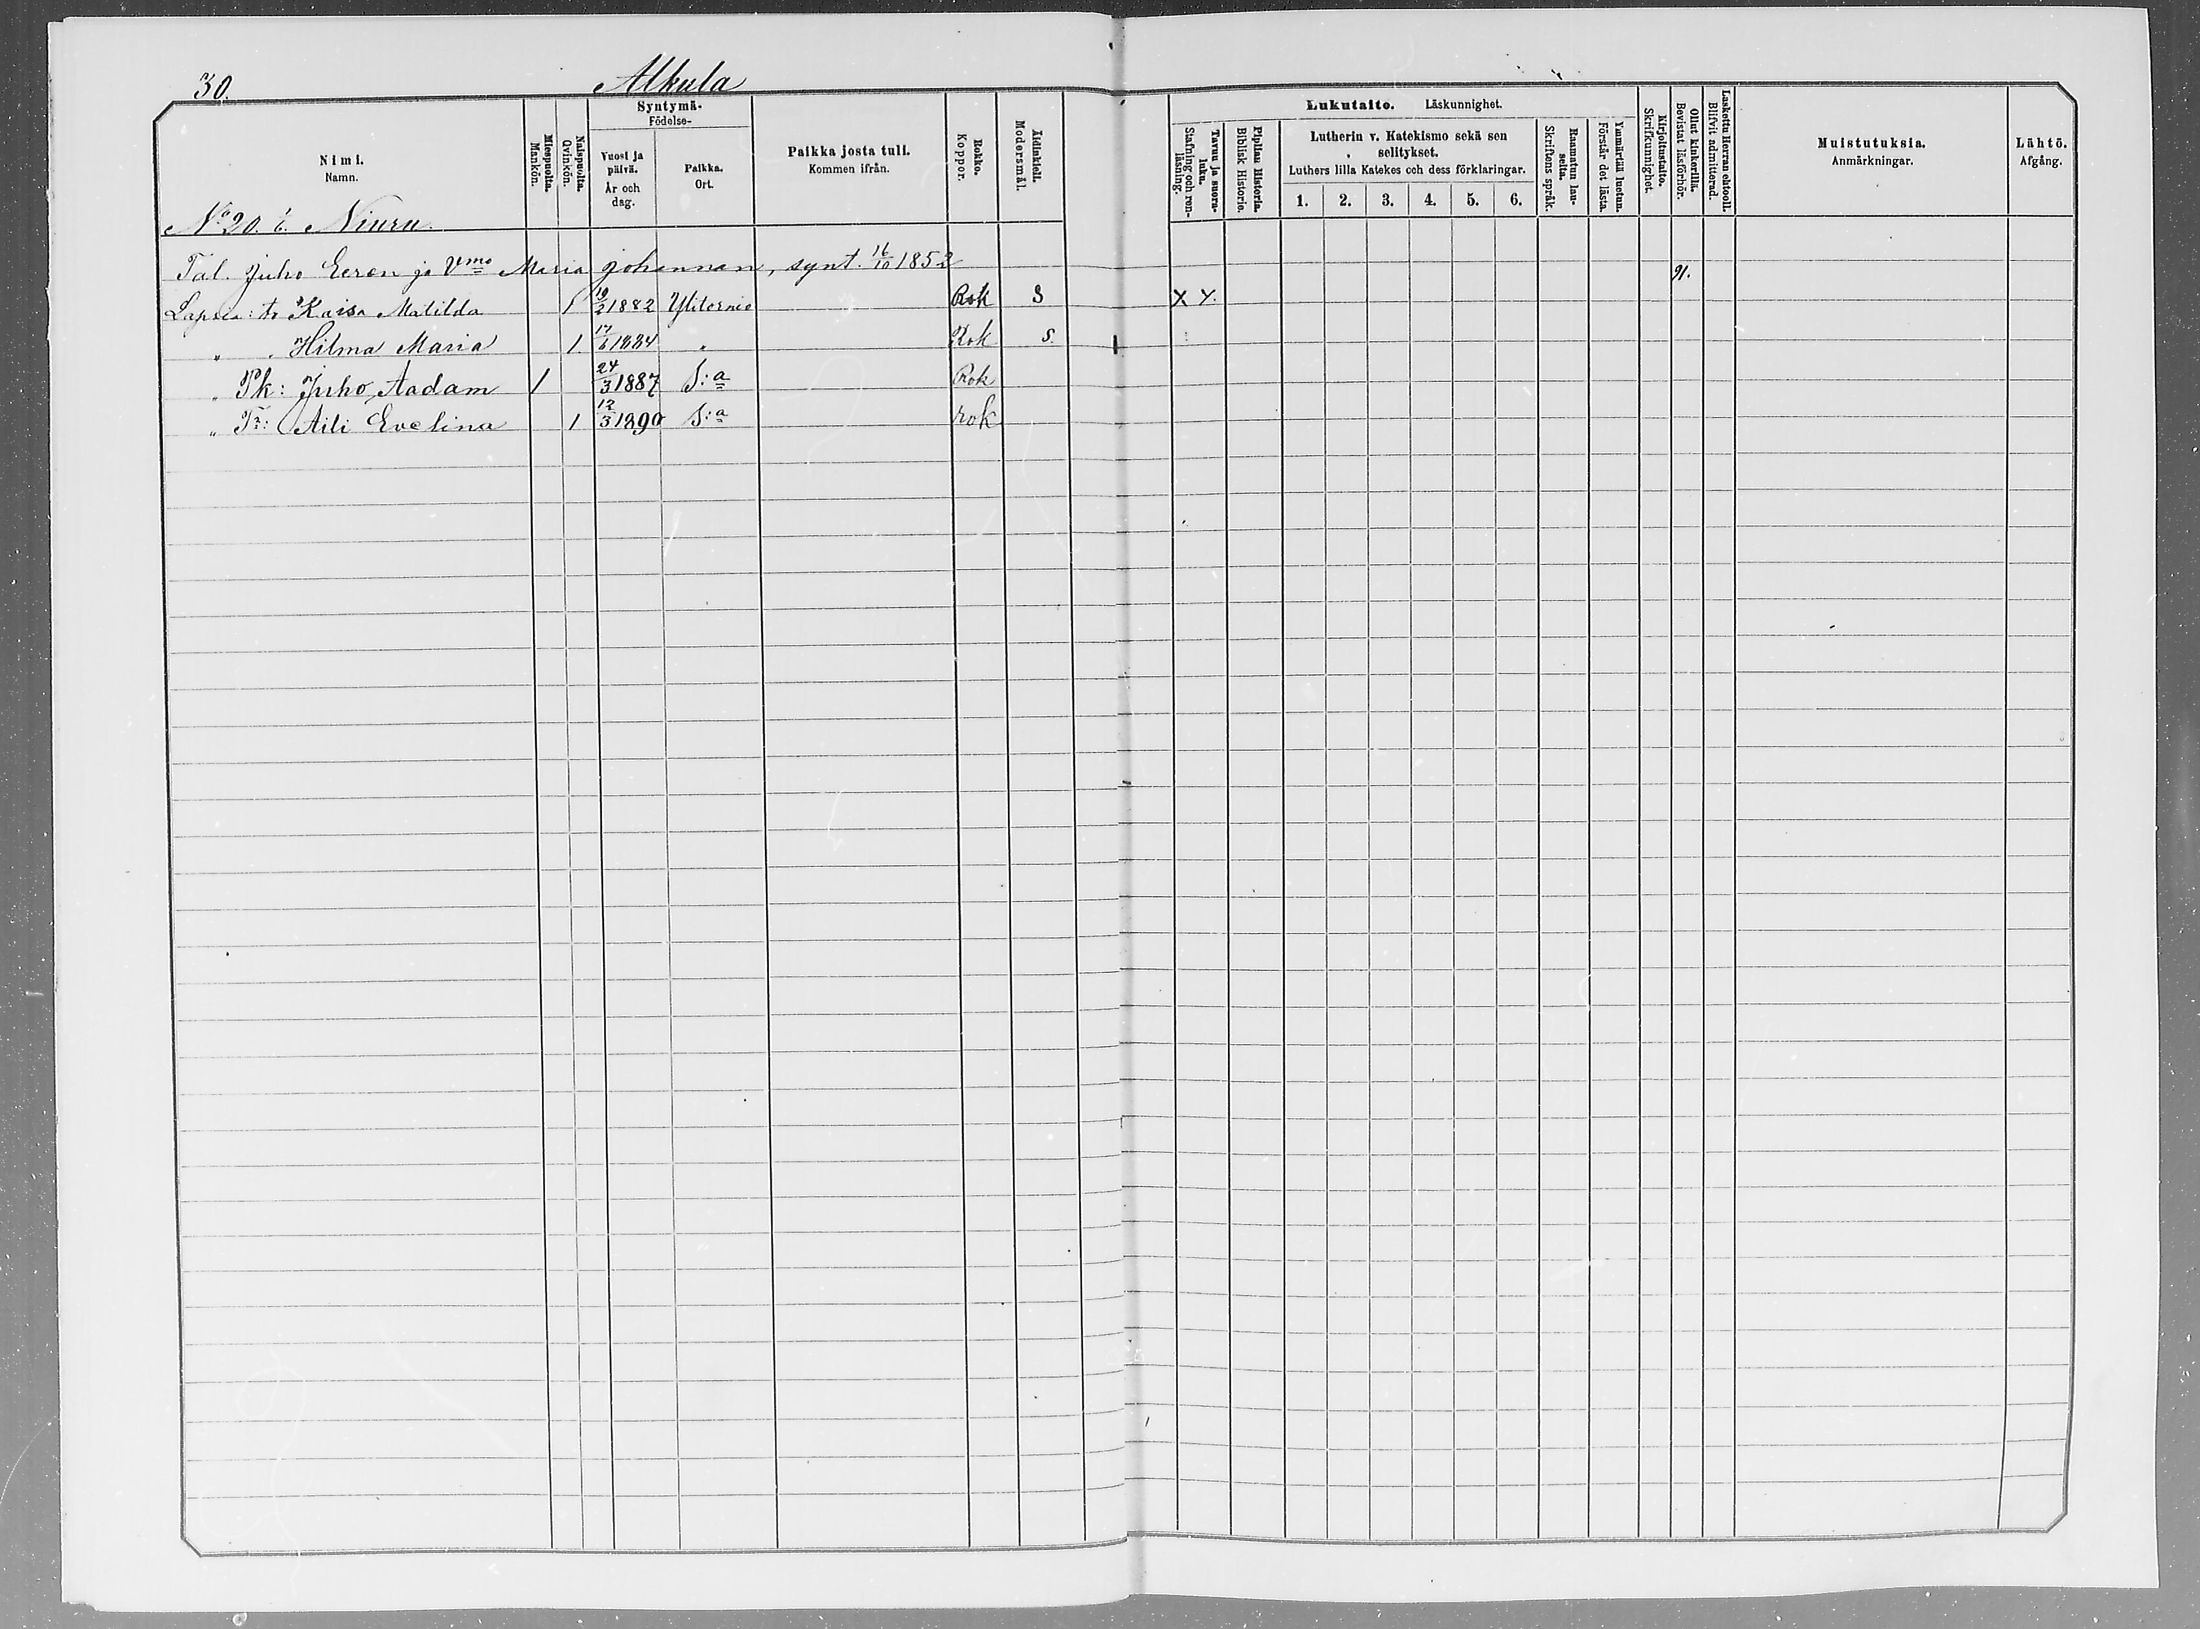 30.
Alkula
Nimi.
Namn.
Miespuolta.
Mankön.
Naispuolta.
Qvinkön.
Syntymä-
Födelse-
Vuosi ja
päivä.
År och
dag.
Paikka.
Ort.
Paikka josta tuli.
Kommen ifrån.
Rokko.
Koppor.
Äidinkieli.
Modersmål.
Lukutaito. Läskunnighet.
Tavuu ja suora-
luku.
Stafning och ren-
läsning.
Piplian Historia.
Biblisk Historie.
Lutherin v. Katekismo sekä sen
selitykset.
Luthers lilla Katekes och dess förklaringar.
1. 2. 3. 4. 5. 6.
Raamatun lau-
seita.
Skriftens språk.
Ymmärtää luetun.
Förstår det lästa.
Kirjoitustaito.
Skrifkunnighet.
Ollut kinkerillä.
Bevistat läsförhör.
Laskettu Herran ehtooll.
Blifvit admitterad.
Muistutuksia.
Anmärkningar.
Lähtö.
Afgång.
No 20. b. Niuru.
Tal. Juho Eeron ja Vmo Maria Johannan, synt. 16/10 1852 91.
Lapsia: tr Kaisa Matilda 1 19/2 1882 Ylitornio Rok S X Y.
„ „ Hilma Maria 1. 17/6 1884 „ Rok S.
„ Pk: Juho Aadam 1 24/3 1887 S:a Rok
„ Tr: Aili Evelina 1 12/3 1890 S:a rok